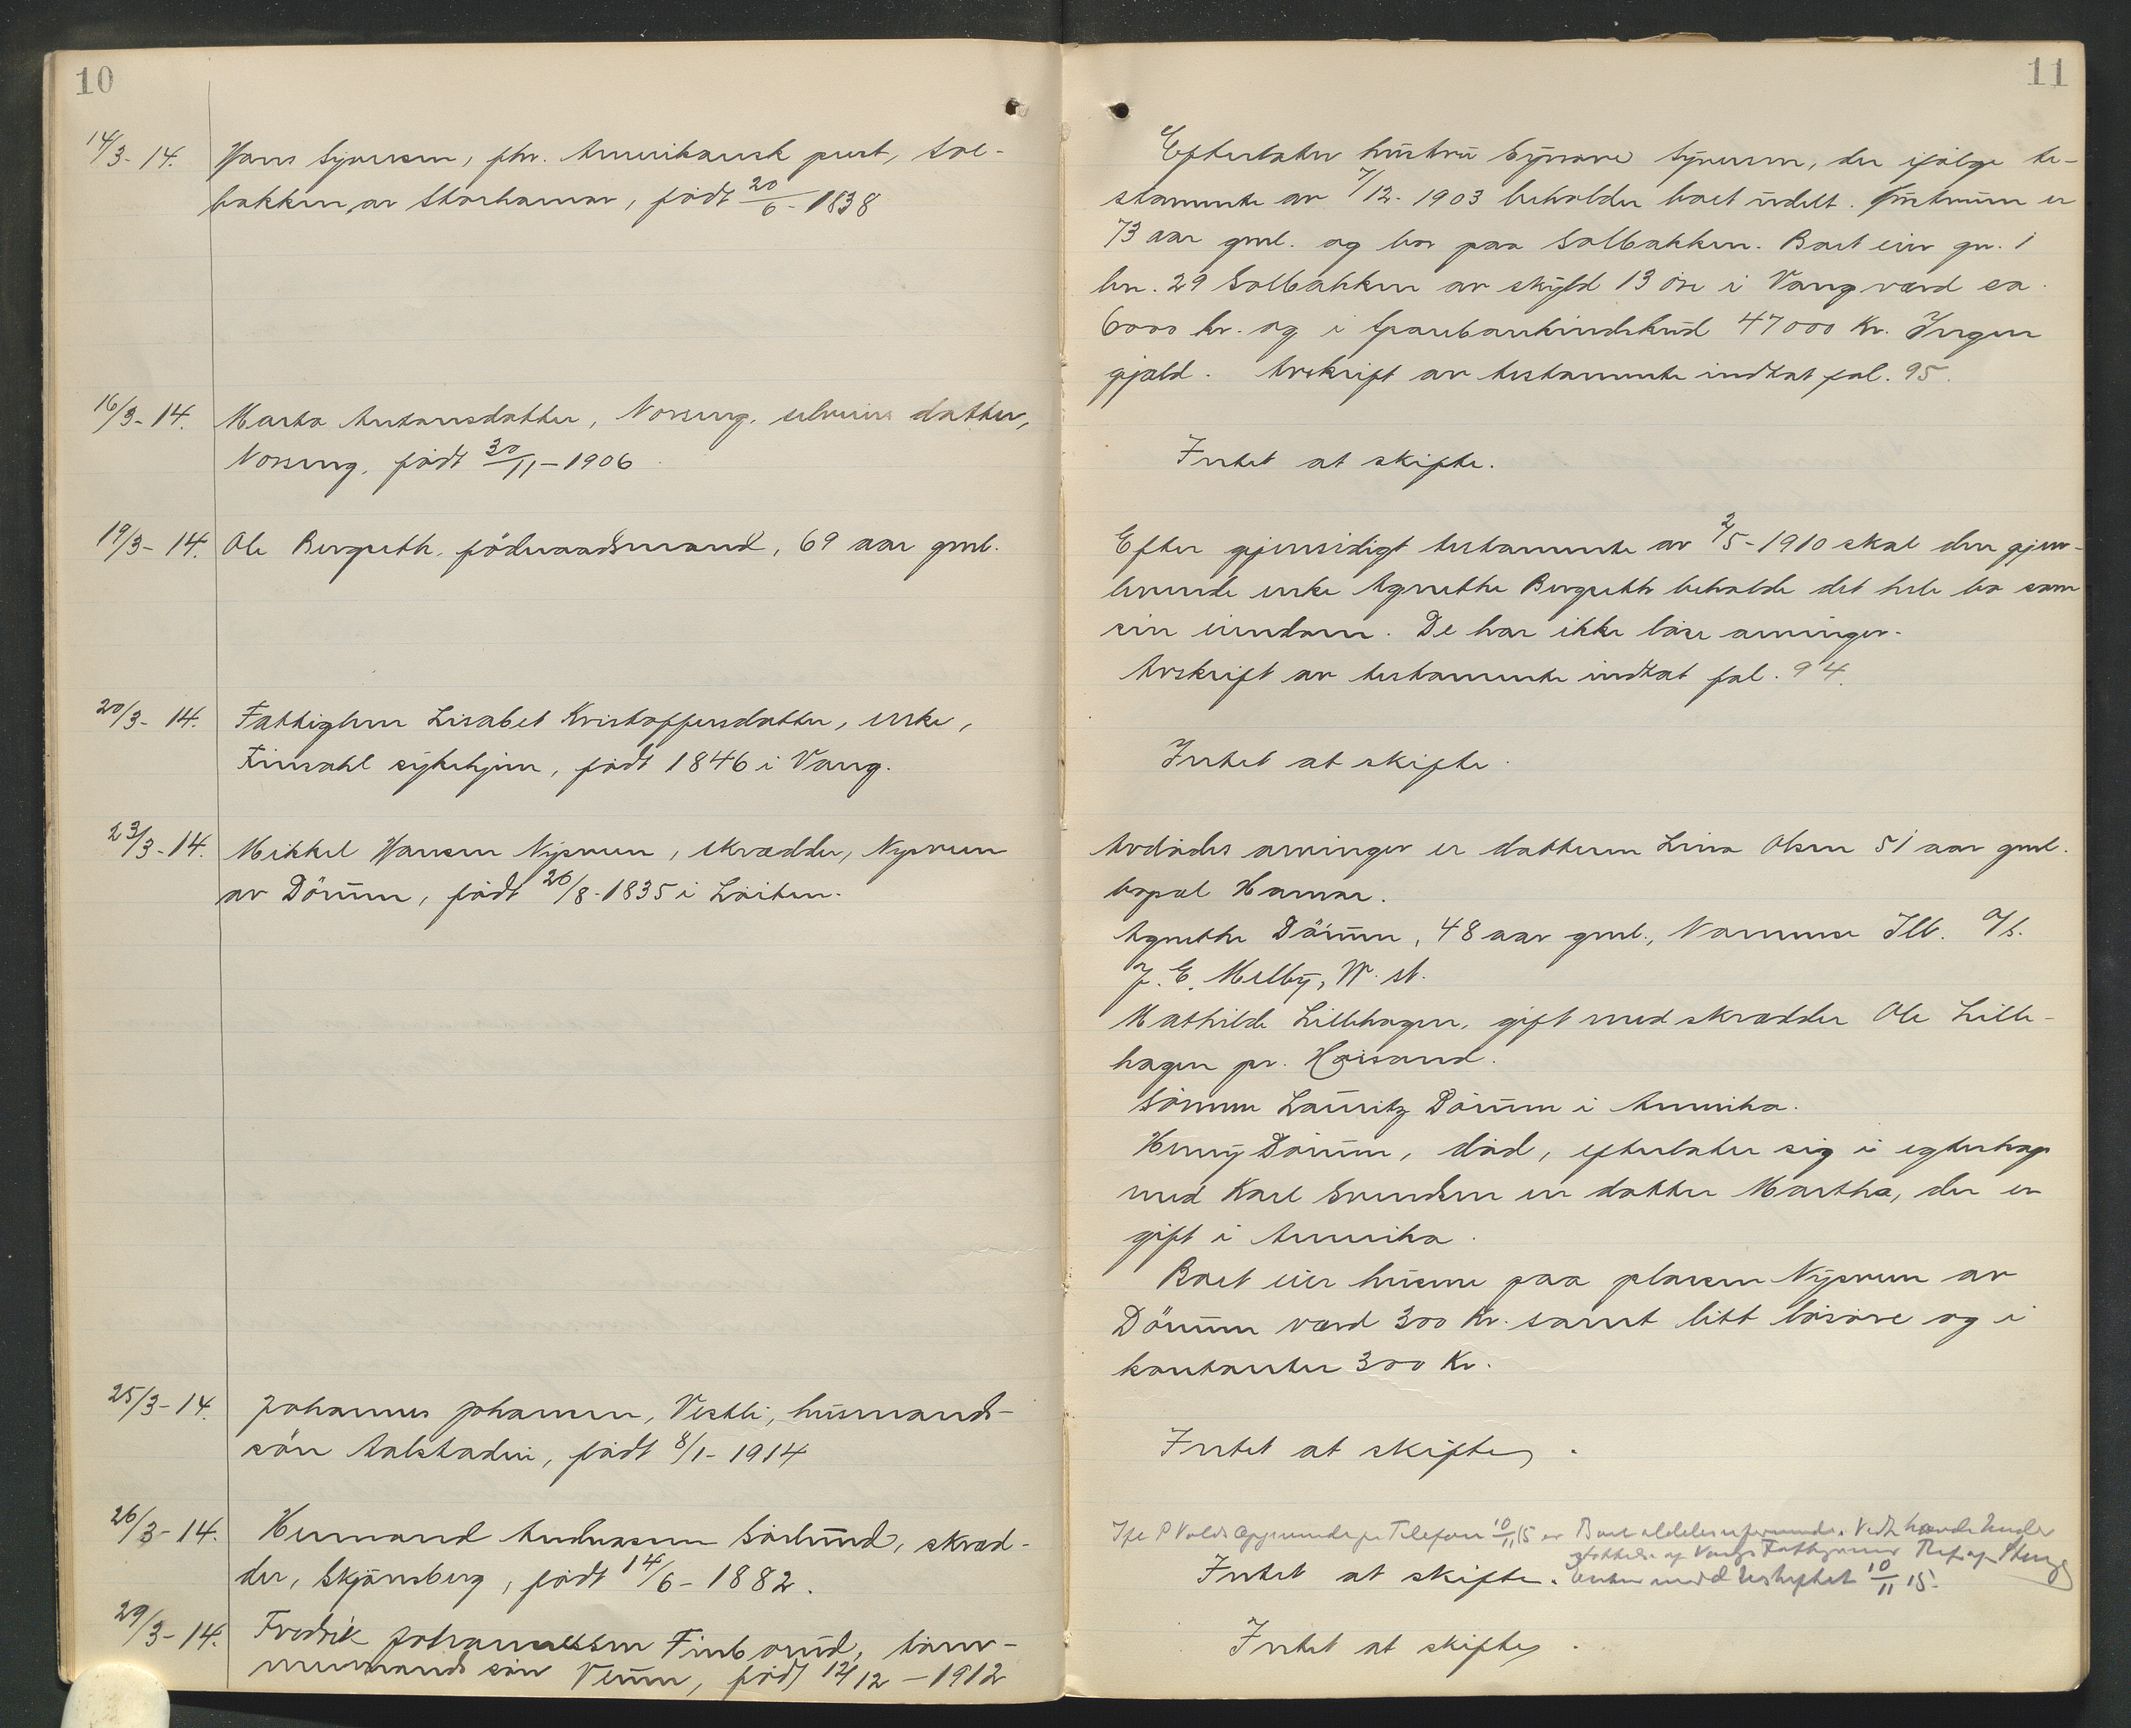 10
14/3-14. Hans Syversen, fhv. Amerikansk prest, Sol-
bakken av Storhamar, født 20/6-1838
16/3-14. Marta Antonsdatter, Norseng, datter,
Norseng, født 30/11-1906
19/3-14. Ole Bergseth, föderaadsmand, 69 aar gml.
20/3-14. Fattiglem Lisabet Kristoffersdatter, enke,
Finsahl sykehjem, født 1846 i Vang.
23/3-14. Mikkel Hansen Nyrnen, skrædder,
av Dörum, født 26/8-1835 i Løiten.
25/3-14. Johannes Johansen, Vestli, husmands-
sön Aalstadeie, født 8/1-1914
26/3-14. Hermand Andreassen Sörlund, skræd-
der, Skjønsberg, født 14/6-1882.
29/3-14. Fredrik Johannessen Finborud, töm-
mermands sön Venn, født 12/12-1912
11
Efterlater hustru Synøve Syversen, der ifølge te-
stamente av 7/12-1903 beholder boet udelt. Hustruen er
73 aar gml. og bor paa Solbakken. Boet eier gn. 1
bn. 29 Solbakken av skyld 13 øre i Vang værd ca.
6000 kr. og i Sparebankindskud 47000 Kr. Ingen
gjæld. Avskrift av testamente indtat fol. 95.
Intet at skifte.
Efter gjensidigt testamente av 2/5-1910 skal den gjen-
levende enke Agnethe Bergseth beholde det hele bo som
sin eiendom. De har ikke arvinger.
Avskrift av testamente indtat fol. 94.
Intet at skifte.
Avdødes arvinger er datteren Lina Olsen 51 aar gml.
bopæl Hamar.
Agnethe Dörum, 48 aar gml., Ill.
J. E. Melby, W. st.
Mathilde Lillehagen, gift med skrædder Ole Lille-
hagen pr. Høisand.
Sønnen Lauritz Dørum i Amerika.
Henny Dørum, død, efterlater sig i egteskap
med Karl Svendsen en datter Martha, der er
gift i Amerika.
Boet eier husene paa plassen
Dörum værd 300 Kr. samt litt løsøre og i
kontanter 300 Kr.
Intet at skifte.
P Volds Telefon 10/11 15 er Boet
af Vangs
Intet at skifte. 10/11 15.
Intet at skifte.